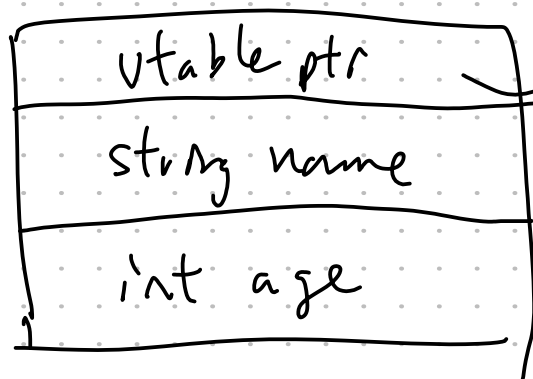 vtable ptr
string name
int age